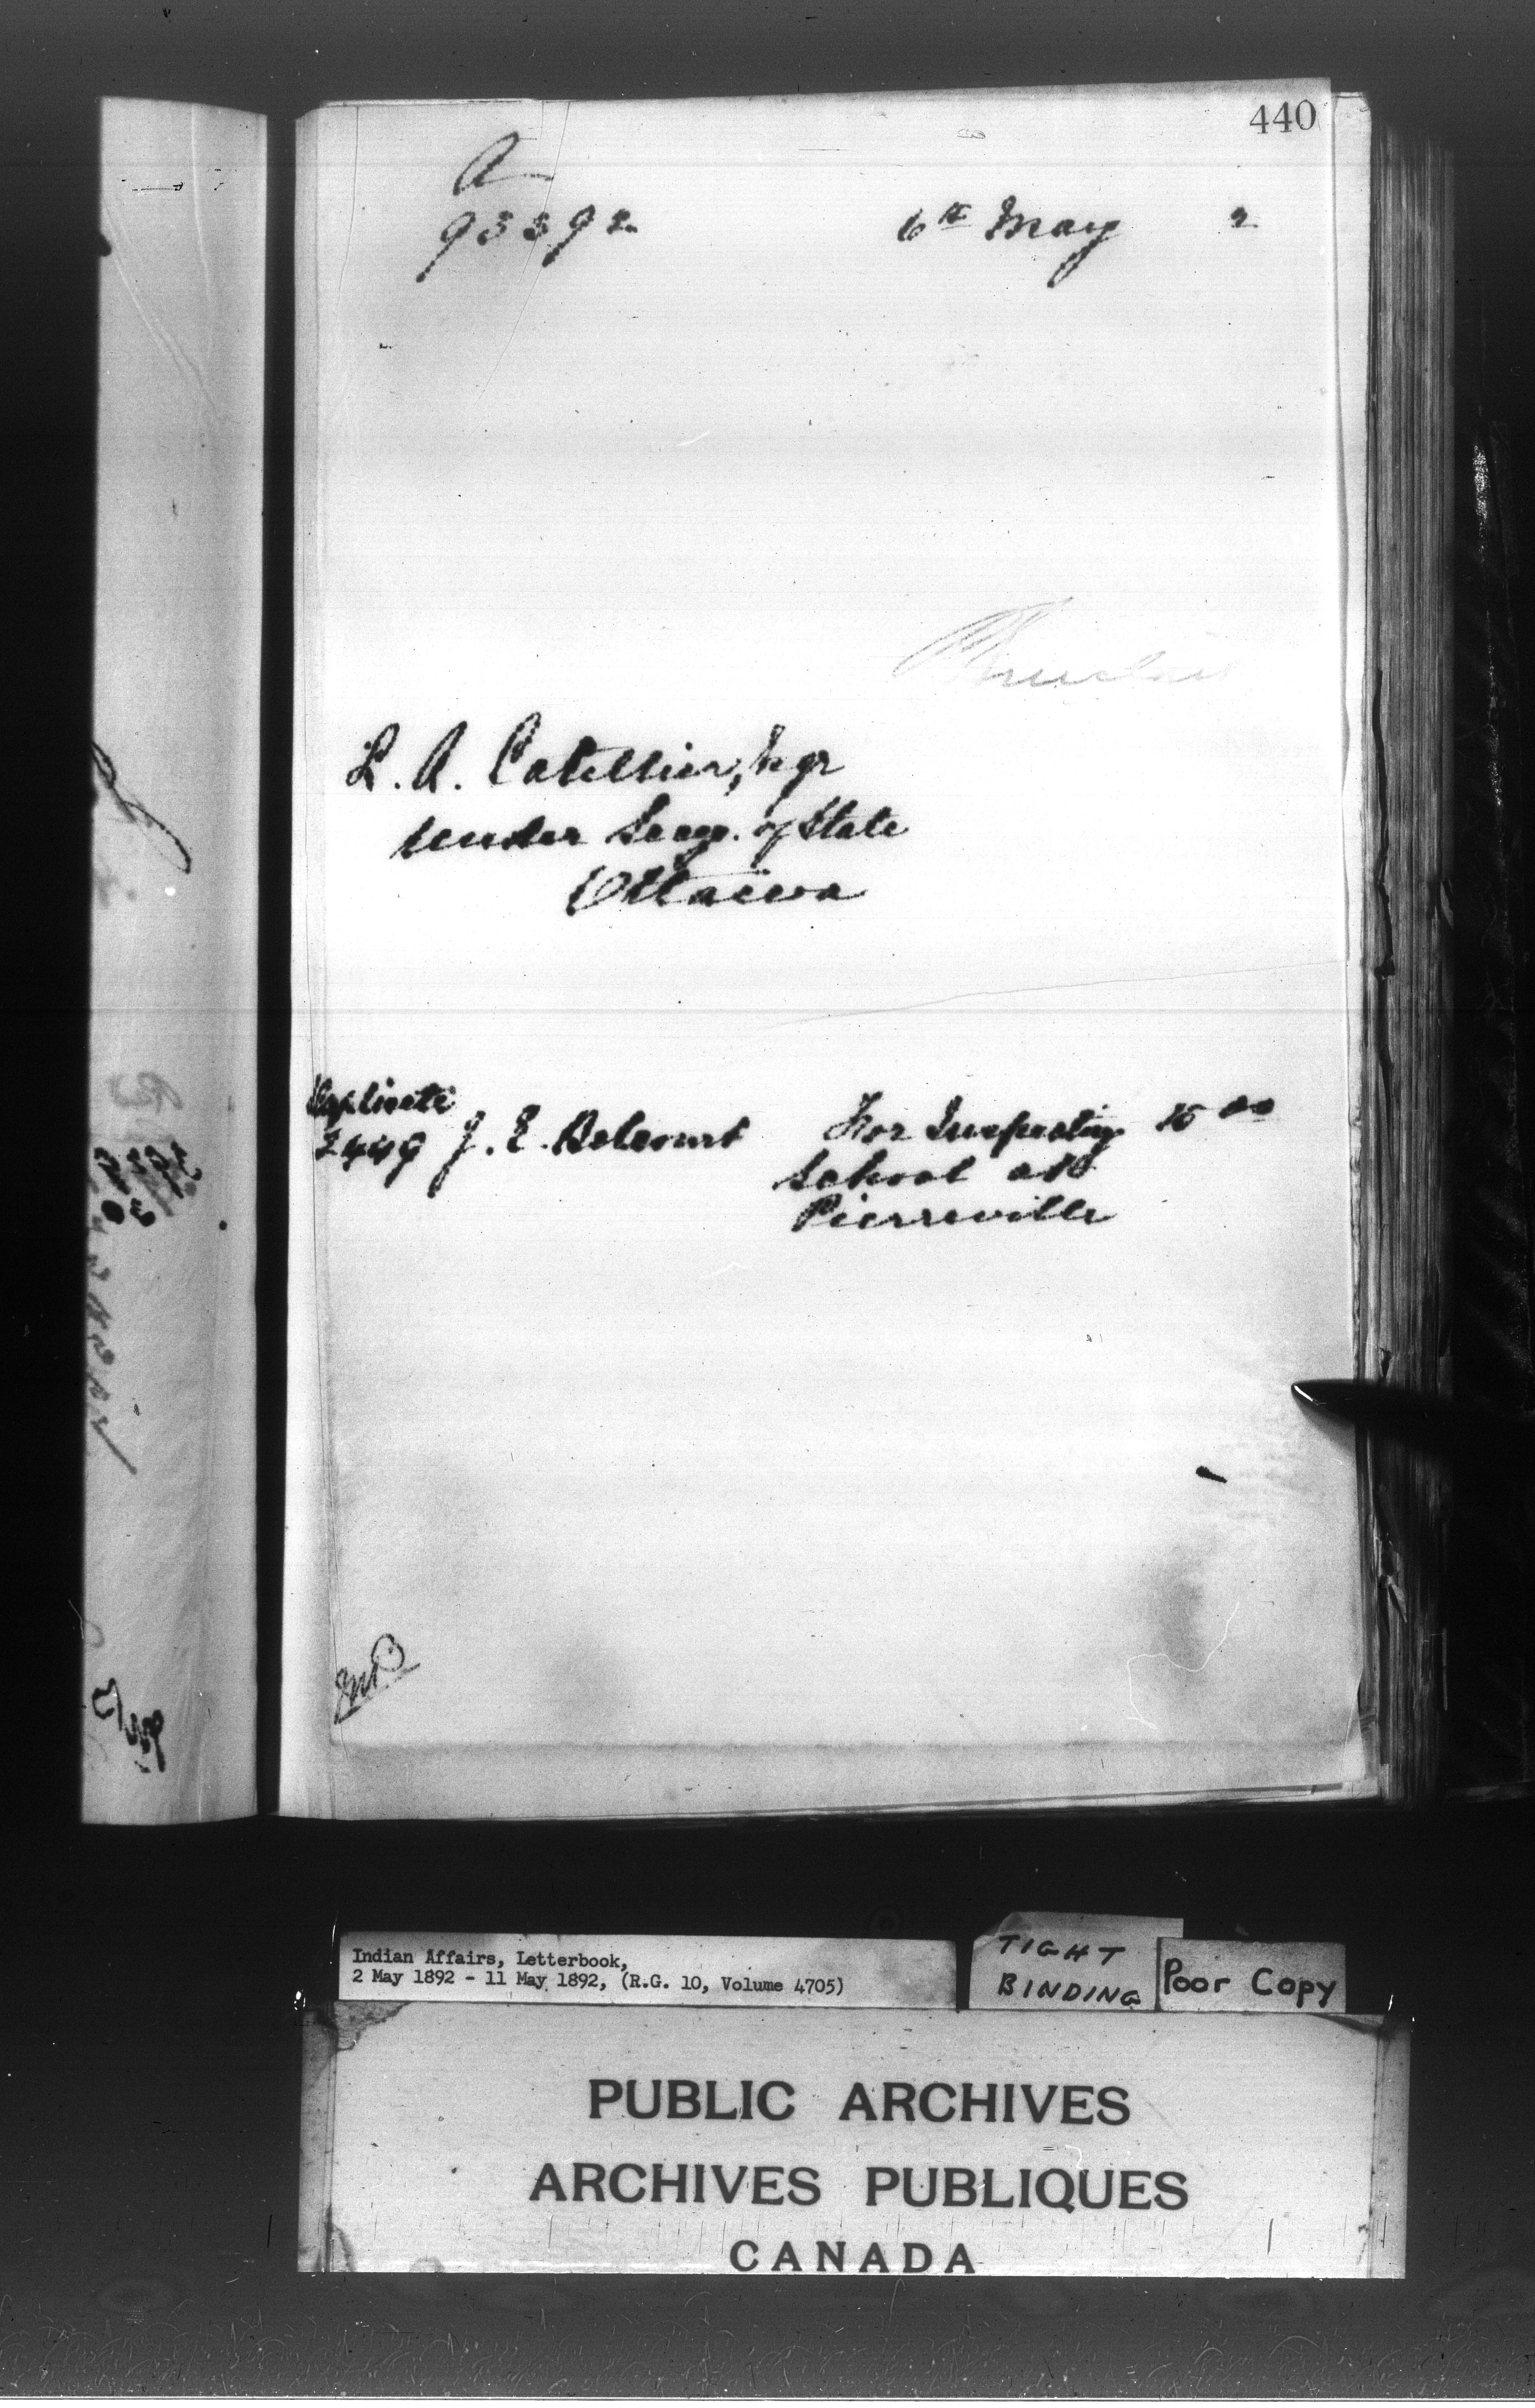 440
A
93392
6th May 2
L. A. Catellier, Esqr
Under Secy. of State
Ottawa
Duplicate
2449 J. E. Belcourt For Inspecting 15 00
School at
Pierreville
Indian Affairs, Letterbook,
2 May 1892 - 11 May 1892, (R.G. 10, Volume 4705)
TIGHT
BINDING
Poor Copy
PUBLIC ARCHIVES
ARCHIVES PUBLIQUES
CANADA